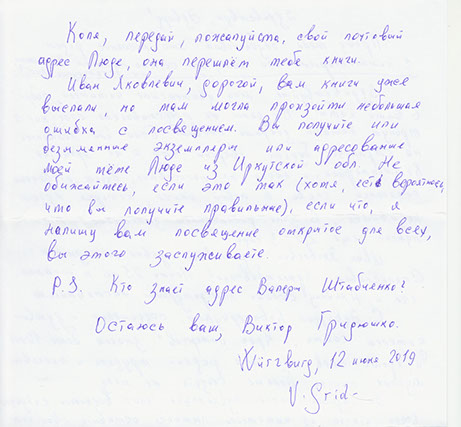 Коля, передай, пожалуйста, свой почтовый
адрес Люде, она перешлёт тебе книги.
Иван Яковлевич, дорогой, вам книги уже
выслали, но там могла произойти небольшая
ошибка с посвящением. Вы получите или
безымянные экземпляры или адресованные
моей тёте Люде из Иркутской обл. Не
обижайтесь, если это так (хотя, есть вероятность,
что вы получите правильные), если что, я
напишу вам посвящение открытое для всех,
вы этого заслуживаете.
P.S. Кто знает адрес Валеры Штабченко?
Остаюсь ваш, Виктор Гридюшко.
12 июня 2019
V. Grid